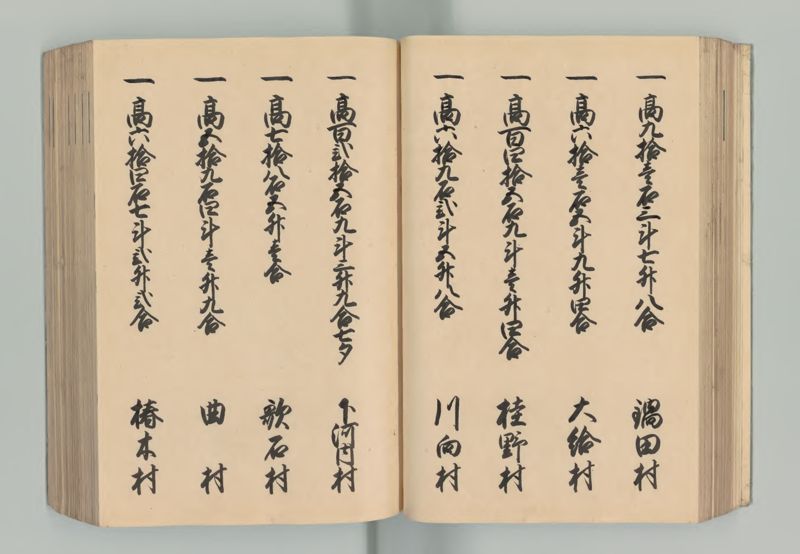 一高九拾壱石三斗七升八合 鍋田村
一高六拾壱石五斗九升四合 大給村
一高百四拾五石九斗壱升四合 桂野村
一高六拾九石弐斗五升八合 川向村
一高百弐拾五石九斗三升九合七夕 下河内村
一高七拾八石五升壱合 歌石村
一高五拾九石四斗壱升九合 曲村
一高六拾四石七斗弐升弐合 椿木村